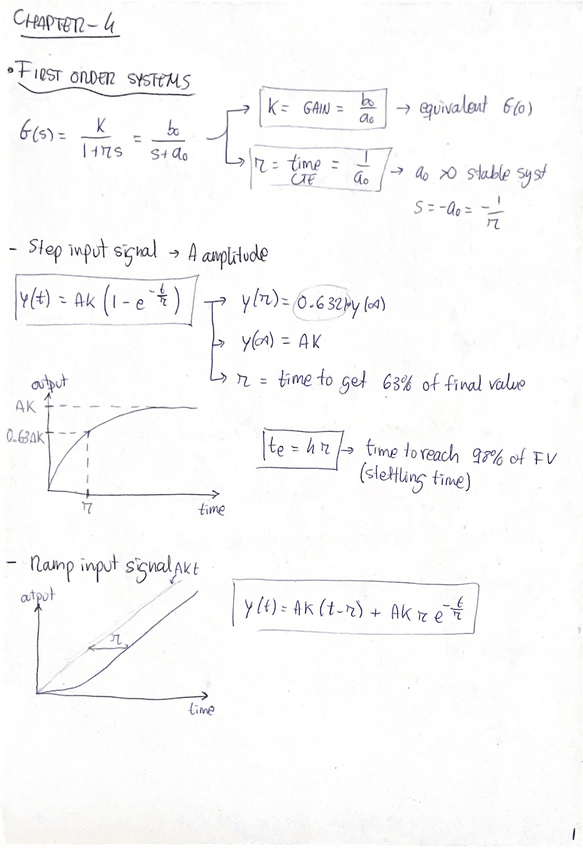 CHAPTER-4
• FIRST ORDER SYSTEMS
G(s) = K / 1+τs = b₀ / s+a₀
K = GAIN = b₀/a₀ → equivalent G(0)
τ = time CTE = 1/a₀ → a₀ >0 stable syst
s = -a₀ = -1/τ
- Step input signal → A amplitude
y(t) = AK (1 - e^(-t/τ))
→ y(τ) = 0.632 y(∞)
→ y(∞) = AK
→ τ = time to get 63% of final value
output
AK
0.63AK
τ
time
te = 4τ → time to reach 98% of FV
(slettling time)
- Ramp input signal
AKt
output
τ
time
y(t) = AK (t-τ) + AK τ e^(-t/τ)
1